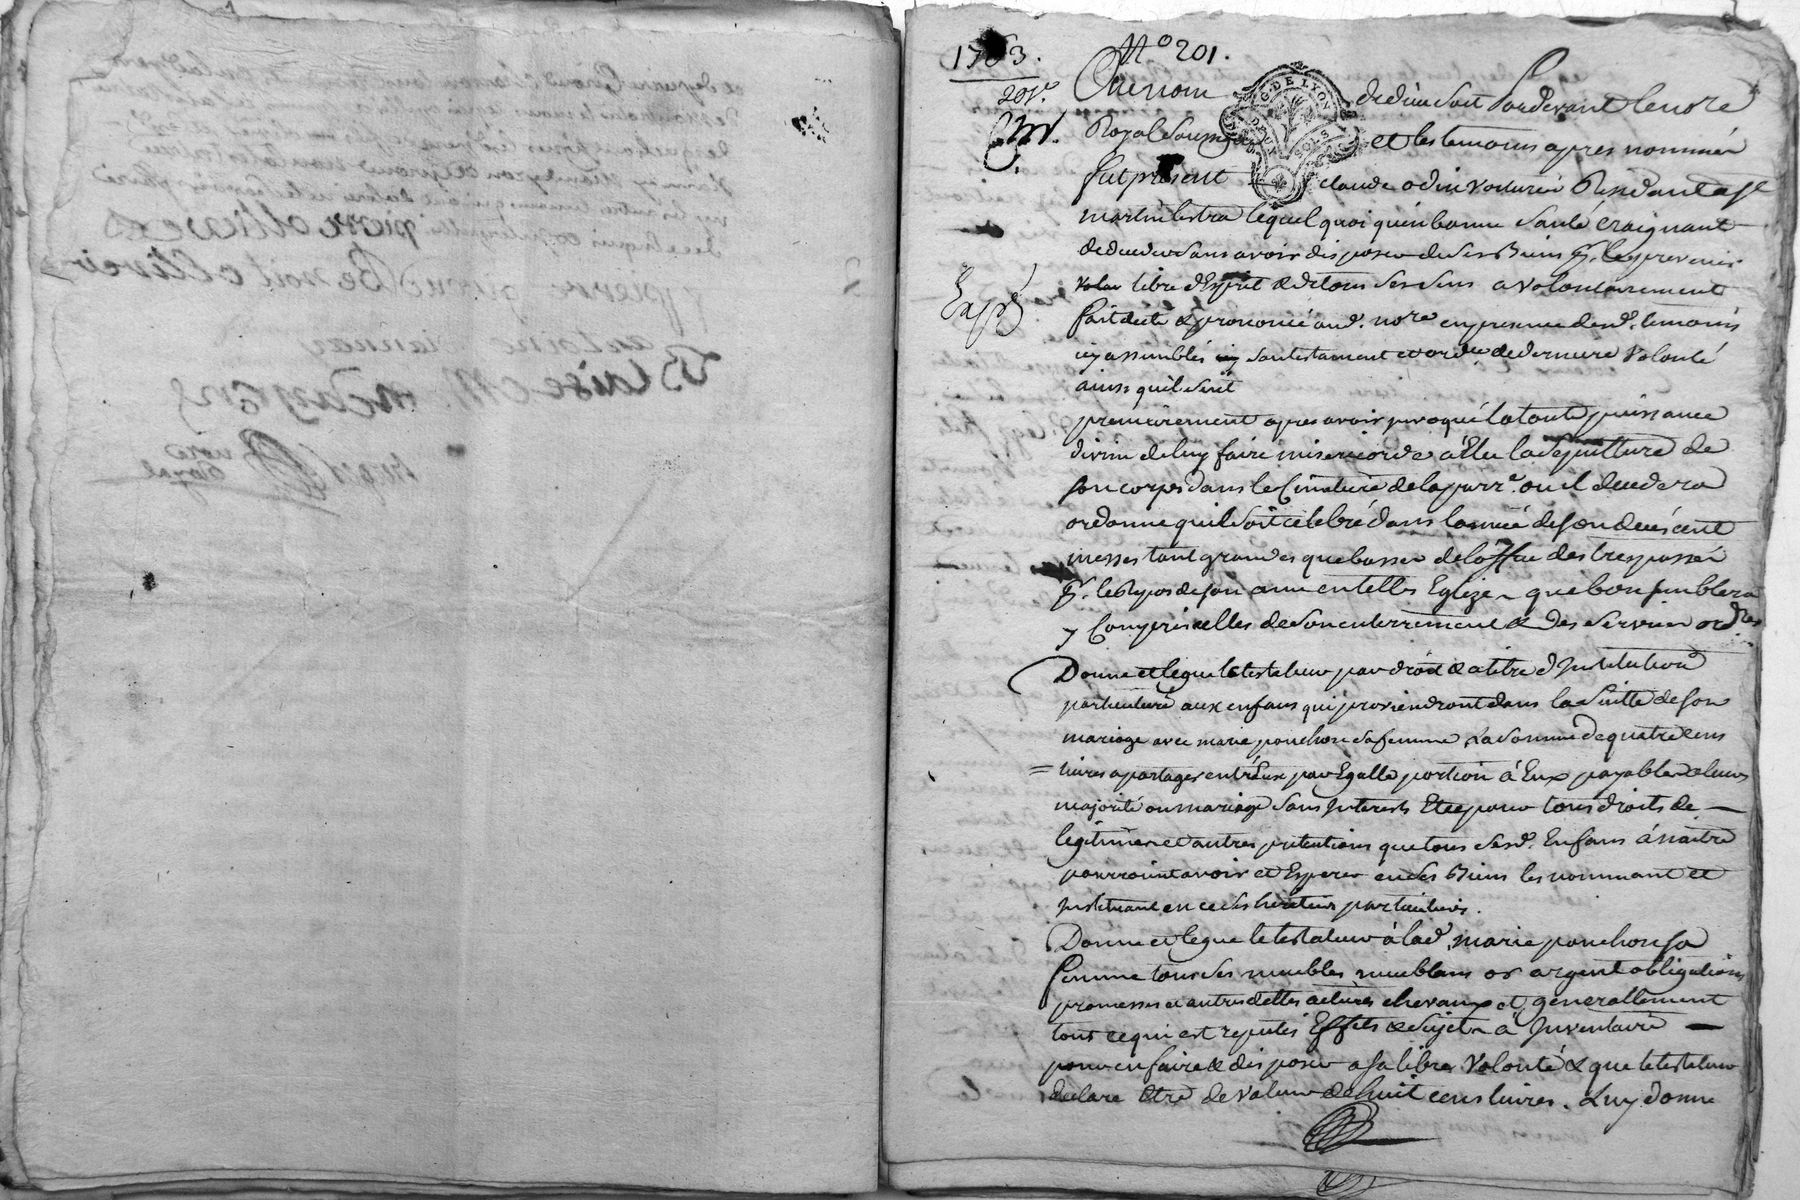 1763.
N° 201.
201e.
Expé
G. DE LYON
DEUX SOLS
Au nom de dieu soit Pardevant le nore
Royal soussigné et les temoins apres nommés
fut présent claude odin voiturier Residant a St
martin lestra lequel quoi quen bonne santé craignant
de deceder sans avoir disposer de ses Biens pr. les prevenir
libre d'Esprit & de tous ses sens a volontairement
fait dicté & prononcé aud. nore en presence desd. temoins
icy assemblés son testament et ordre de derniere volonté
ainsi quil suit
premierement apres avoir invoqué la toute puissance
divine de luy faire misericorde a élu la sepulture de
son corps dans le Cimetiere de la parre. ou il decedera
ordonne quil soit celebré dans lannée de son decès cent
messes tant grandes que basses de loffice des trespassés
pr. le Repos de son ame en telles Eglizes que bon semblera
y Compris celles de son enterrement & des services ordres
Donne et legue le testateur par droit & a titre d'Institution
particuliere aux enfans qui proviendront dans la suitte de son
mariage avec marie ponchon sa femme La somme de quatre cens
livres a partager entr'Eux par Egalle portion à Eux payable a leurs
majorité ou mariage sans Interests Et ce pour tous droits de
legitimes et autres pretentions que tous sesd. Enfans à naitre
pourroient avoir et Esperer en ses Biens les nommant et
Instituant en ce ses heritiers particuliers.
Donne et legue le testateur à lad. marie ponchon sa
femme tous ses meubles meublans or argent obligations
promesses et autres dettes actives chevaux et generallement
tout ce qui est reputés Effets & sujets a Inventaire
pour en faire & disposer a sa libre Volonté & que le testateur
declare Etre de valeur de huit cens livres. Luy donne